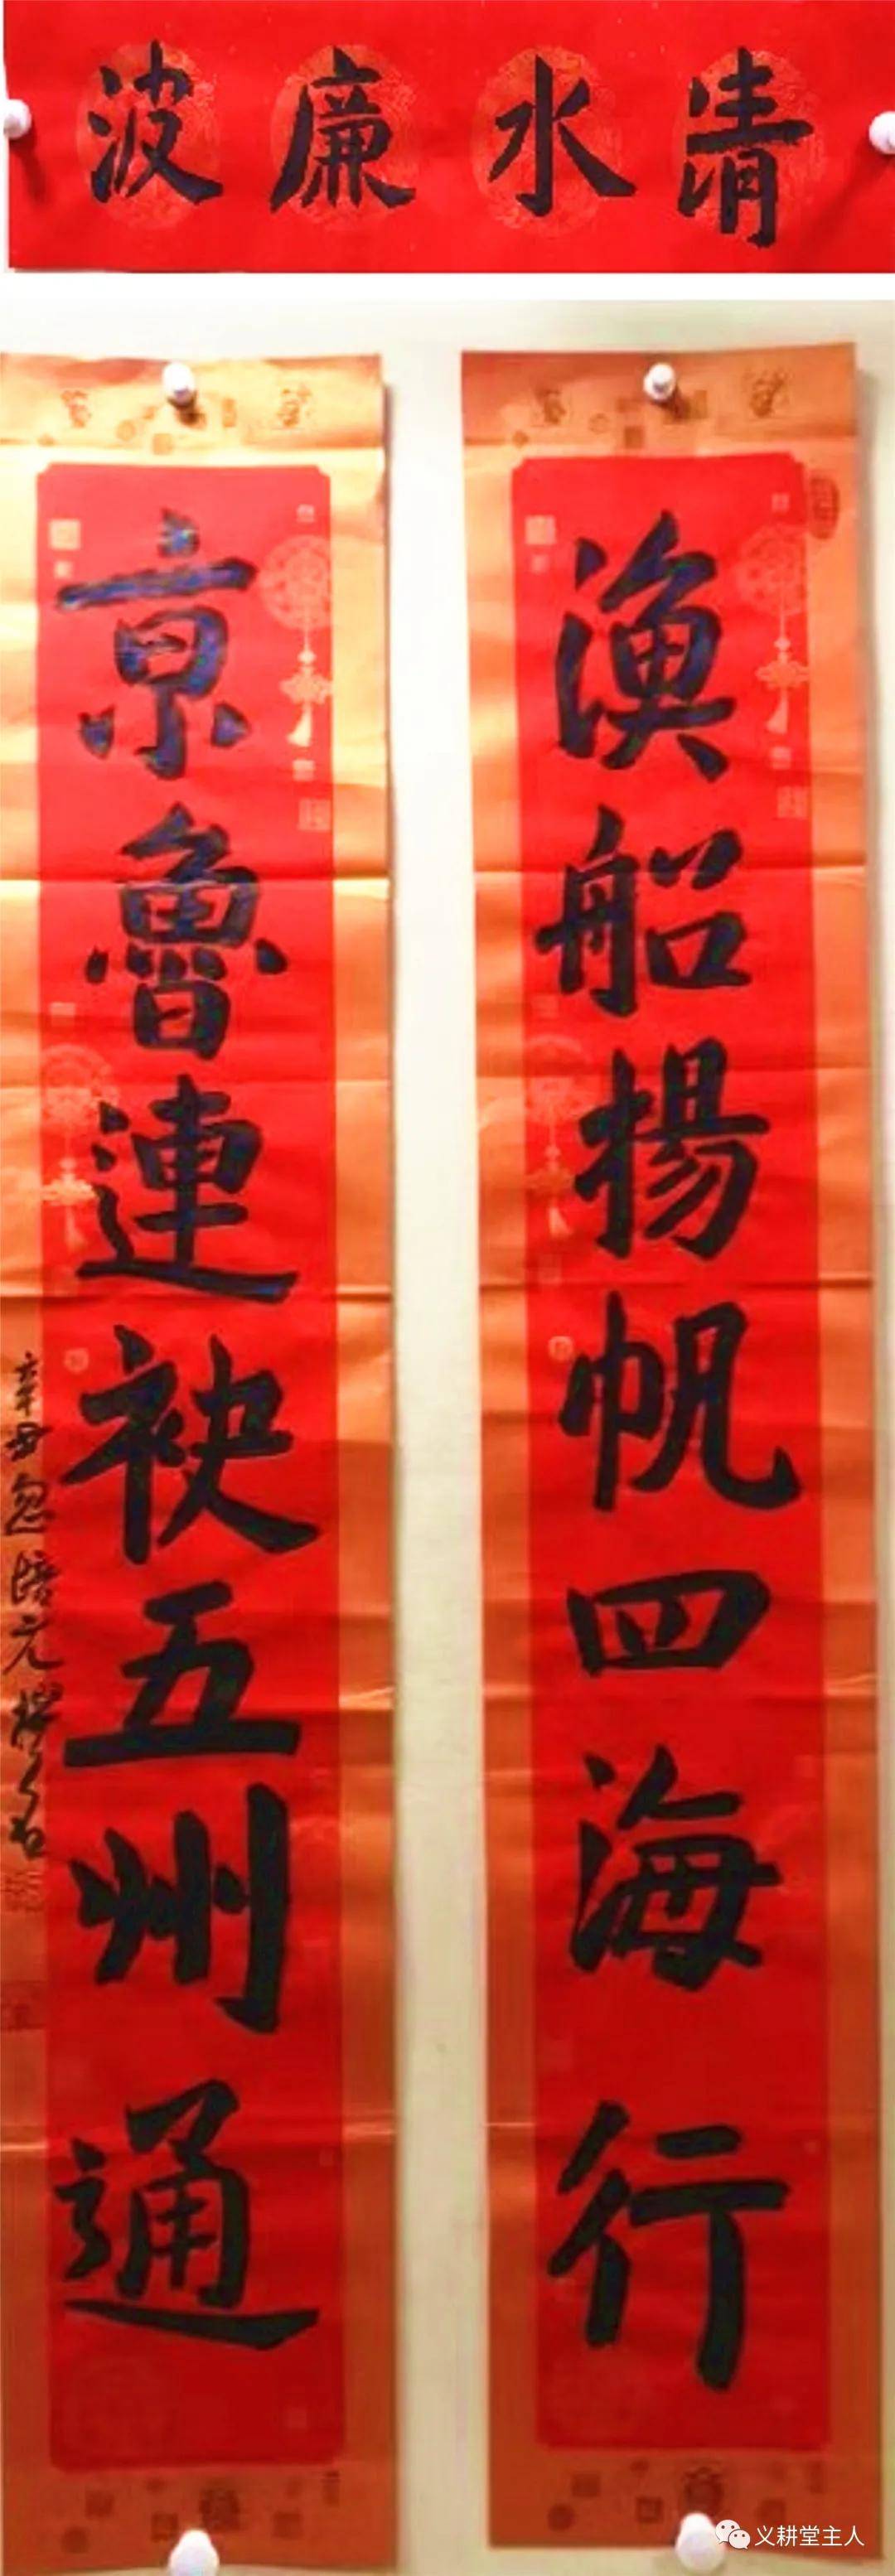 清水廉波
渔船揚帆四海行
京魯連袂五州通
辛丑忽培元撰書
义耕堂主人